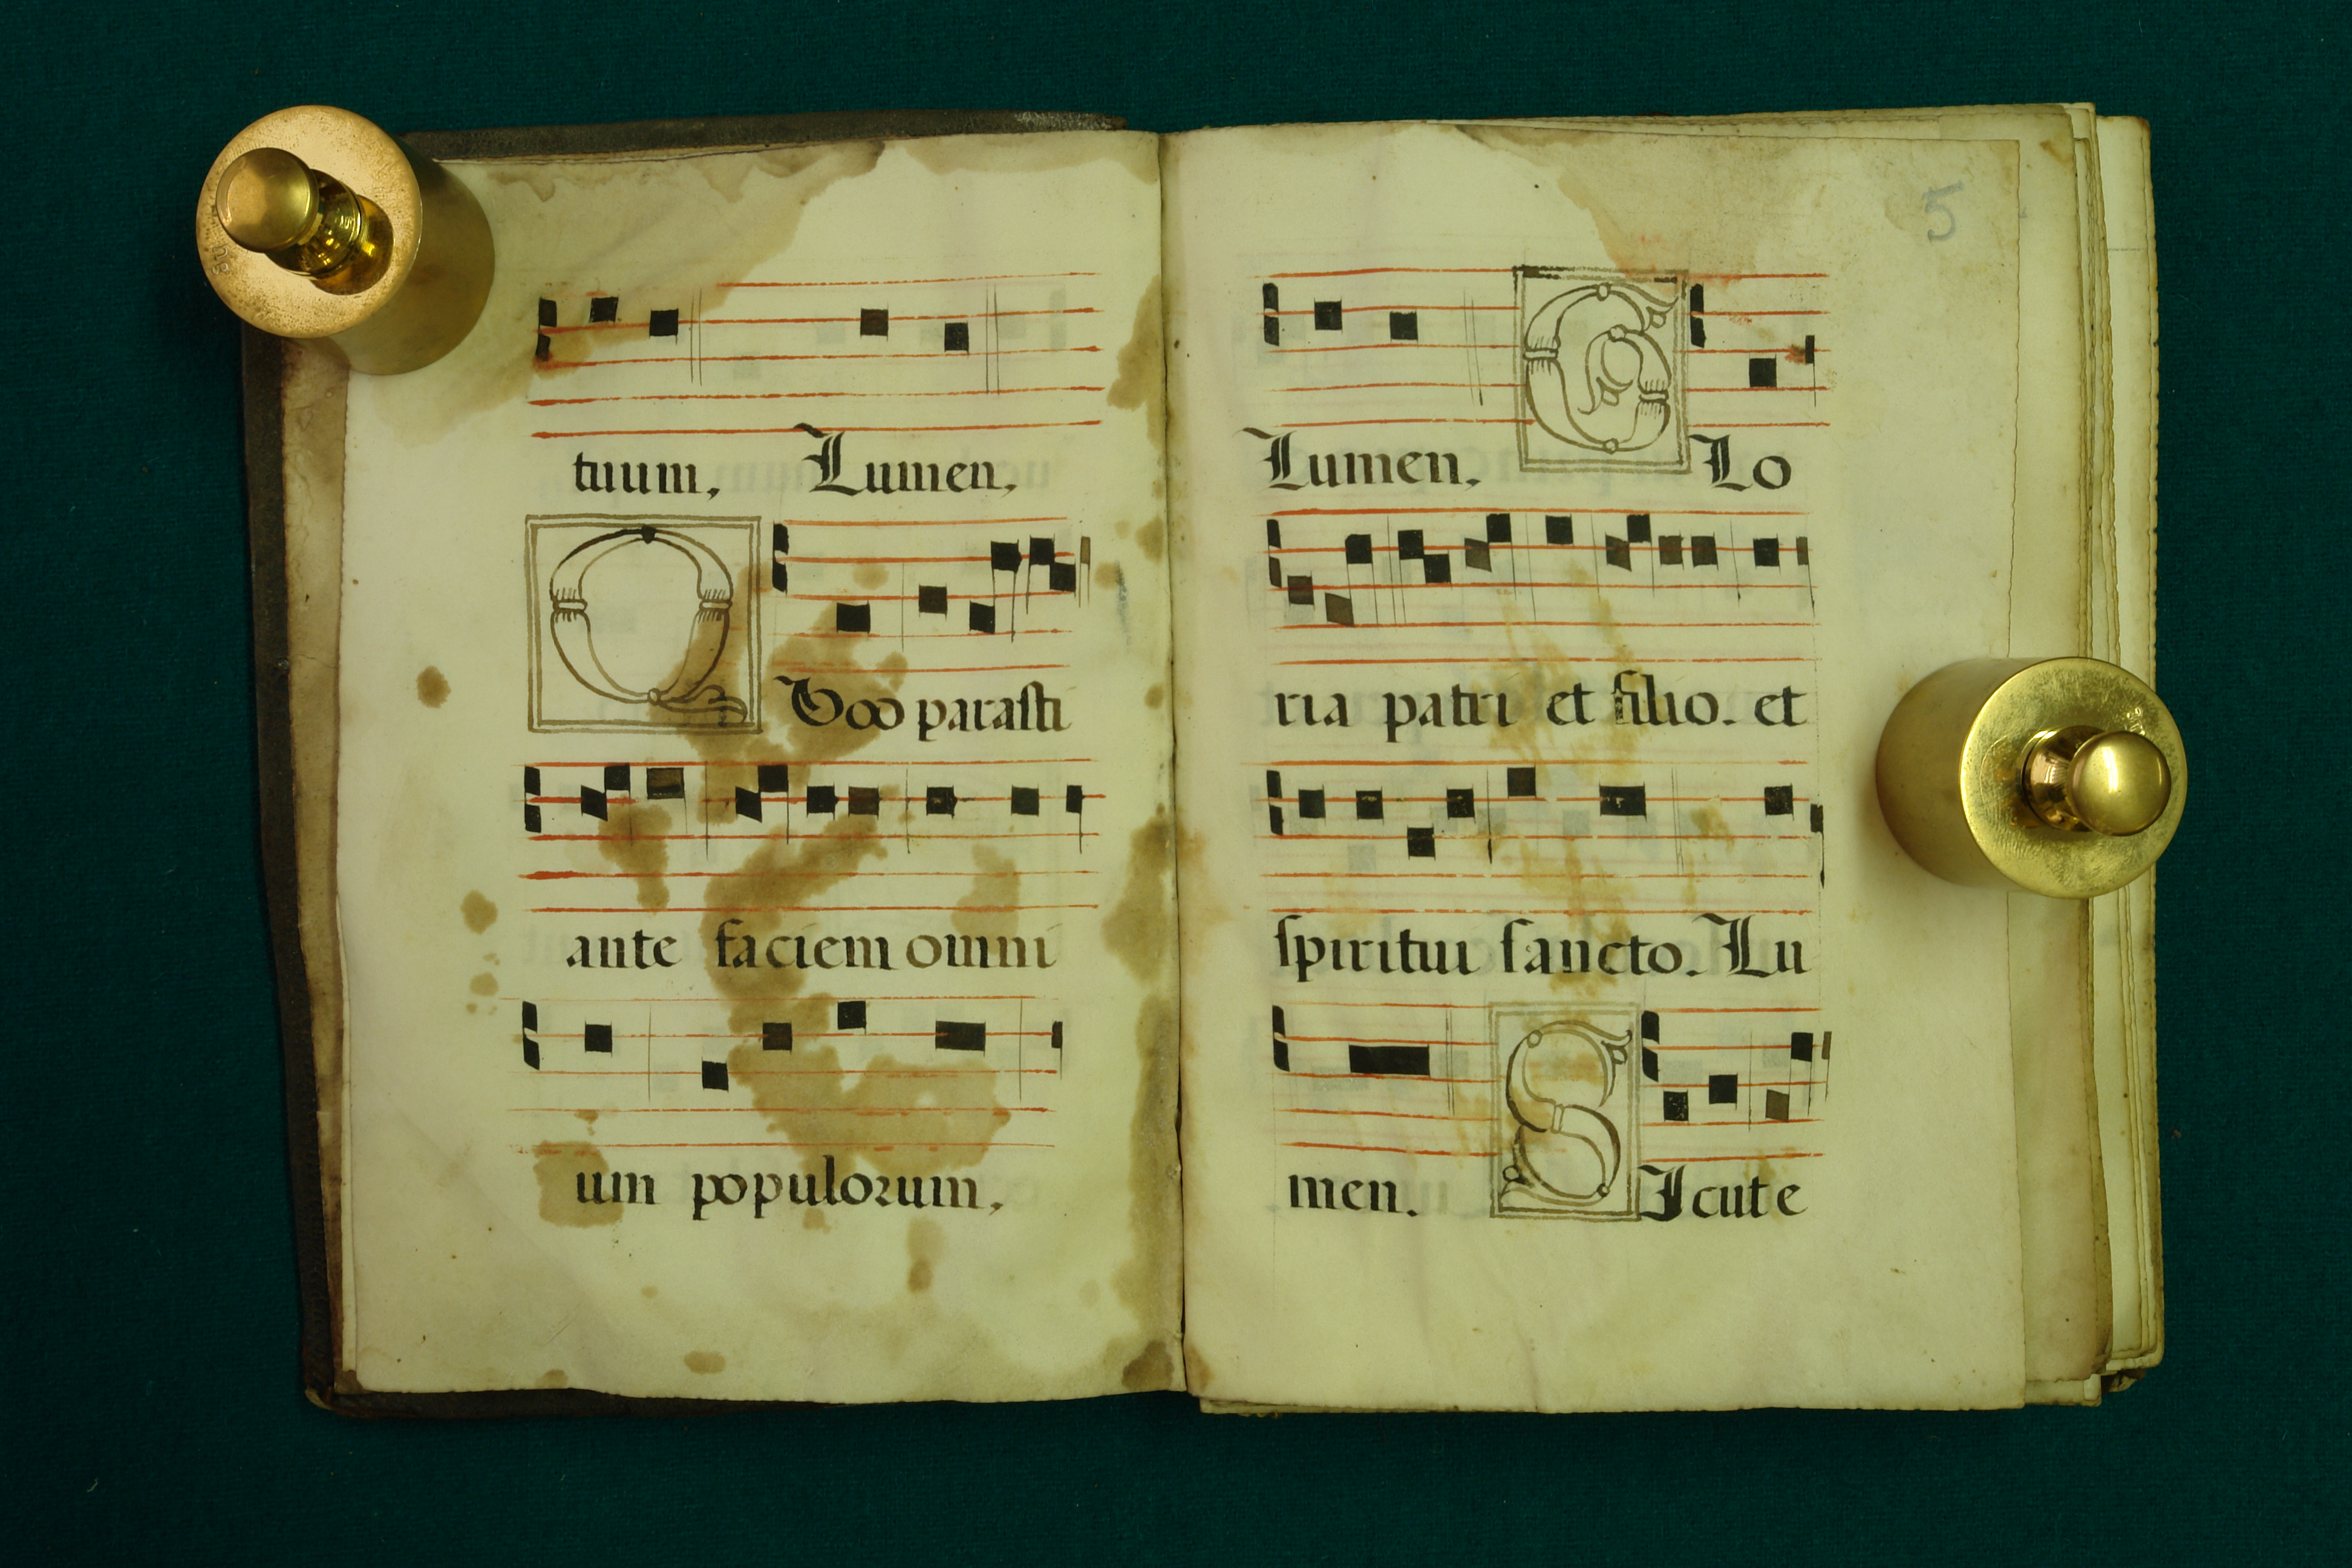 tuum, Lumen,
QVod parasti
ante faciem omni
um populorum,
5
Lumen, GLo
ria patri et filio. et
spiritui sancto. Lu
men. SIcut e